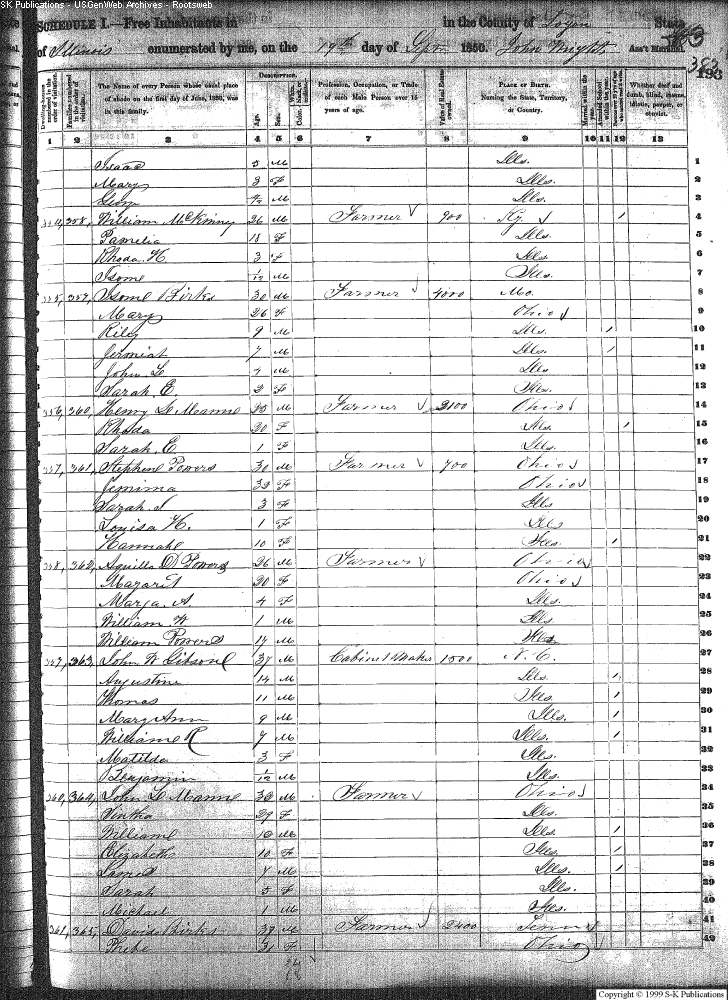 SK Publications - USGenWeb Archives - Rootsweb
SCHEDULE I.—Free Inhabitants in in the County of Logan State
of Illinois enumerated by me, on the 19th day of Sept 1850. John Wright Ass't Marshal.
383
193
DESCRIPTION.
The Name of every Person whose usual place of abode on the first day of June, 1850, was in this family.
Age. Sex. White, Color, black, or mulatto.
Profession, Occupation, or Trade of each Male Person over 15 years of age.
Value of Real Estate owned.
PLACE OF BIRTH. Naming the State, Territory, or Country.
Married within the year.
Whether deaf and dumb, blind, insane, idiotic, pauper, or convict.
1 2 3 4 5 6 7 8 9 10 11 12 13
Isaac 5 M Ills. 1
Mary 3 F Ills. 2
Geor M Ills. 3
354, 358, William McKinney 26 M Farmer 900 Ky. / 4
Pamelia 18 F Ills. 5
Rhoda H 3 F Ills. 6
Isome 1/12 M Ills. 7
355, 359, Isome Birks 30 M Farmer 4000 Mo. 8
Mary 26 F Ohio 9
Riley 9 M Ills. / 10
Jermiah 7 M Ills. / 11
John L 4 M Ills 12
Sarah E. 2 F Ills. 13
356, 360, Henry L Manne 25 M Farmer 2100 Ohio 14
Rhoda 20 F Ills. / 15
Sarah E 1 F Ills. 16
357, 361, Stephen Powers 30 M Farmer 700 Ohio 17
Jemima 32 F Ohio 18
Sarah J 3 F Ills 19
Louisa H. 1 F Ills 20
Hannah 10 F Ills. / 21
358, 362, Aquilla D Powers 26 M Farmer Ohio 22
Margaret 20 F Ohio 23
Marja A. 4 F Ills. 24
William W 1 M Ills 25
William Powers 17 M Ills 26
359, 363, John W Gibson 37 M Cabinet Maker 1500 N. C. 27
Augustine 14 M Ills / 28
Thomas 11 M Ills. / 29
Mary Ann 9 M Ills. / 30
William R 7 M Ills. / 31
Matilda 3 F Ills. 32
Benjamin 1/12 M Ills. 33
360, 364, John L Manne 32 M Farmer Ohio 34
Sintha 29 F Ills. 35
William 10 M Ills. / 36
Elizabeth 10 F Ills. / 37
James 8 M Ills. / 38
Sarah 5 F Ills. 39
Michael 1 M Ills. 40
361, 365, David Birks 39 M Farmer 2400 Tenn 41
Phebe 31 F Ohio 42
Copyright © 1999 S-K Publications